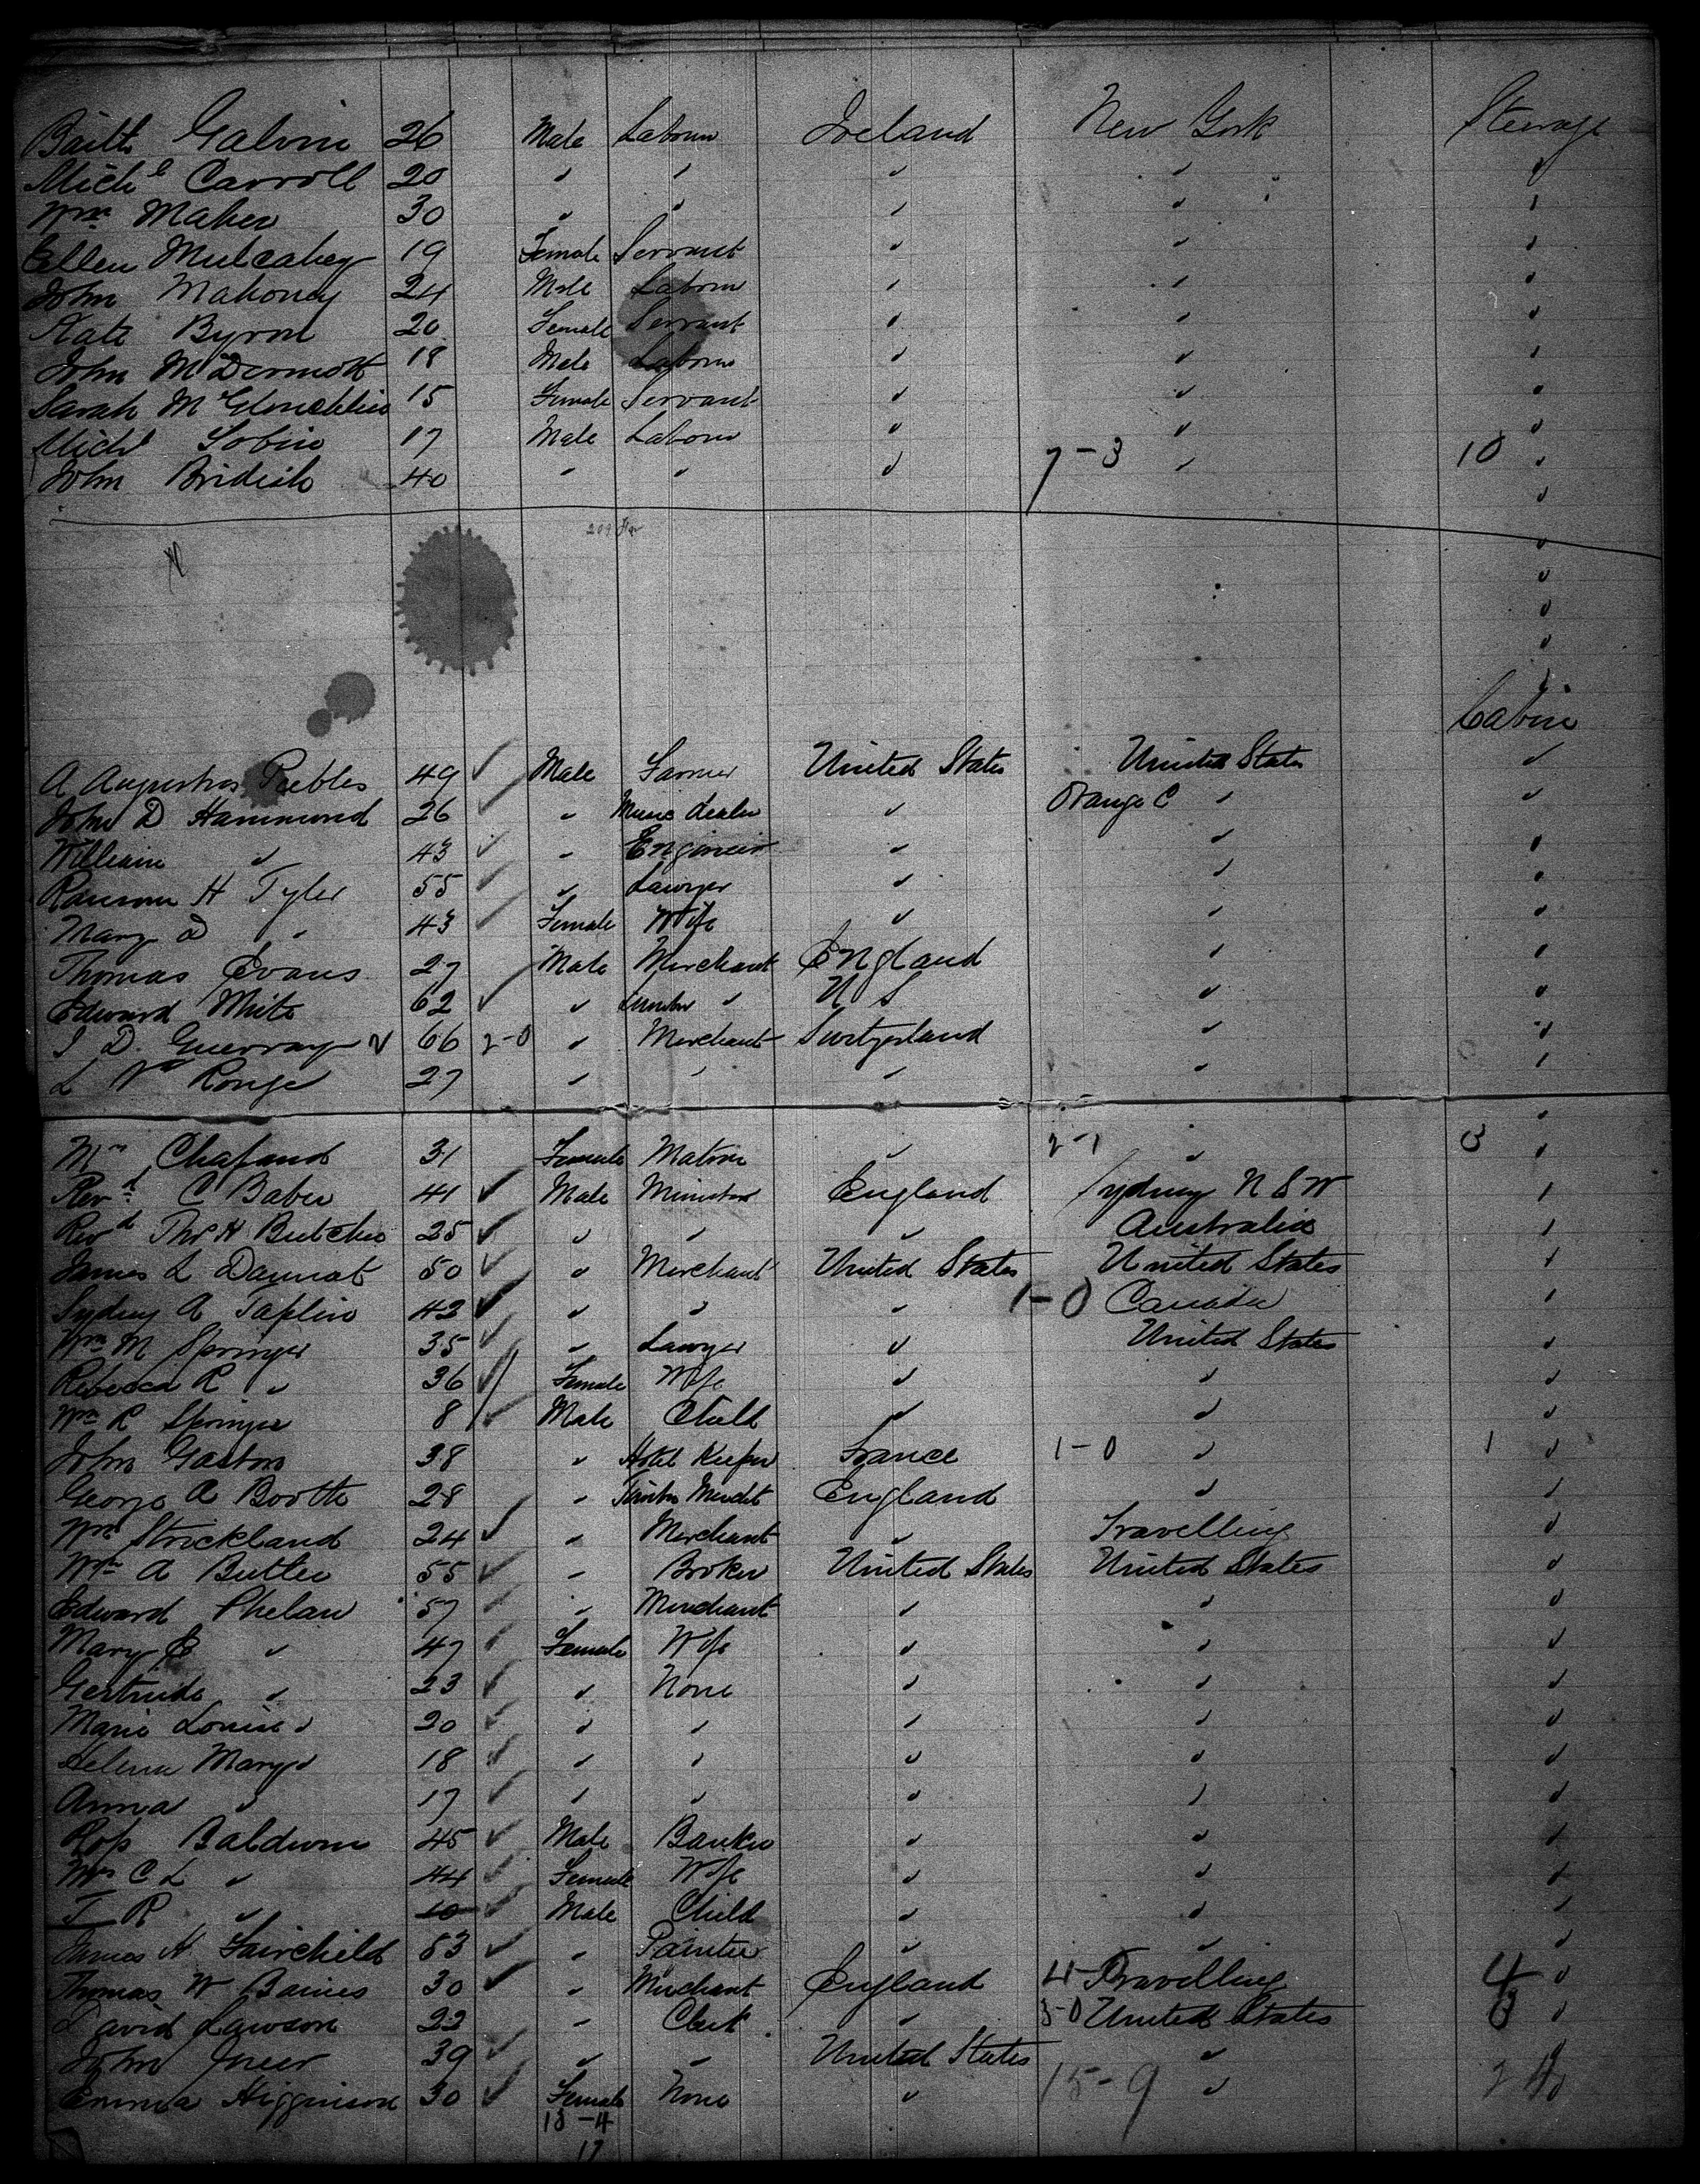 Bartt Galvin 26 Male Labourer Ireland New York Steerage
Mich'l Carroll 20 " " " " "
Wm Maher 30 " " " " "
Ellen Mulcahey 19 Female Servant " " "
John Mahoney 24 Male Labour " " "
Kate Byron 20 Female Servant " " "
John McDermott 18 Male Labour " " "
Sarah McGlouchlin 15 Female Servant " " "
Michl Tobin 17 Male Labour " " "
John 40 " " " 7-3 " 10 "
Cabin
A Augustus Peebles 49 Male Farmer United States United States "
John D Hammond 26 " Music dealer " Orange C " "
William " 43 " Engineer " " "
Ransom H Tyler 55 " Lawyer " " "
Mary D " 43 Female Wife " " "
Thomas Evans 27 Male Merchant England " "
Edward White 62 " " U S " "
J D. 66 2-0 " Merchant Switzerland " "
L Rouge 27 " " " " "
Chafaud 31 Female Matron " 2-1 " 3 "
Revd C Baber 41 Male Minister England Sydney N S W "
Revd Thos H Butcher 25 " " " Australia "
James L Daymat 50 " Merchant United States United States "
Sydney A Taplin 42 " " " 1-0 Canada "
Wm M Springer 35 " Lawyer " United States "
Rebecca R " 36 Female Wife " " "
Wm R Springer 8 Male Child " " "
John Gaston 38 " Hotel Keeper France 1-0 " 1 "
George A Booth 28 " Timber Mercht England " "
Wm Strickland 24 " Merchant " Travelling "
Wm A Butler 55 " Broker United States United States "
Edward Phelan 57 " Merchant " " "
Mary E " 47 Female Wife " " "
Gertrude " 23 " None " " "
Marie Louise " 20 " " " " "
Helena Mary " 18 " " " " "
Anna " 17 " " " " "
Baldwin 45 Male Banker " " "
Mrs C L " 44 Female Wife " " "
T R " 10 Male Child " " "
James H Fairchild 53 " Painter " " "
Thomas W Baines 30 " Merchant England 4- Travelling 4 "
David Lawson 22 " Clerk " 3-0 United States 3 "
John 39 " " United States " "
Emma Higginson 30 Female None " 15-9 " 24 "
13-4
17